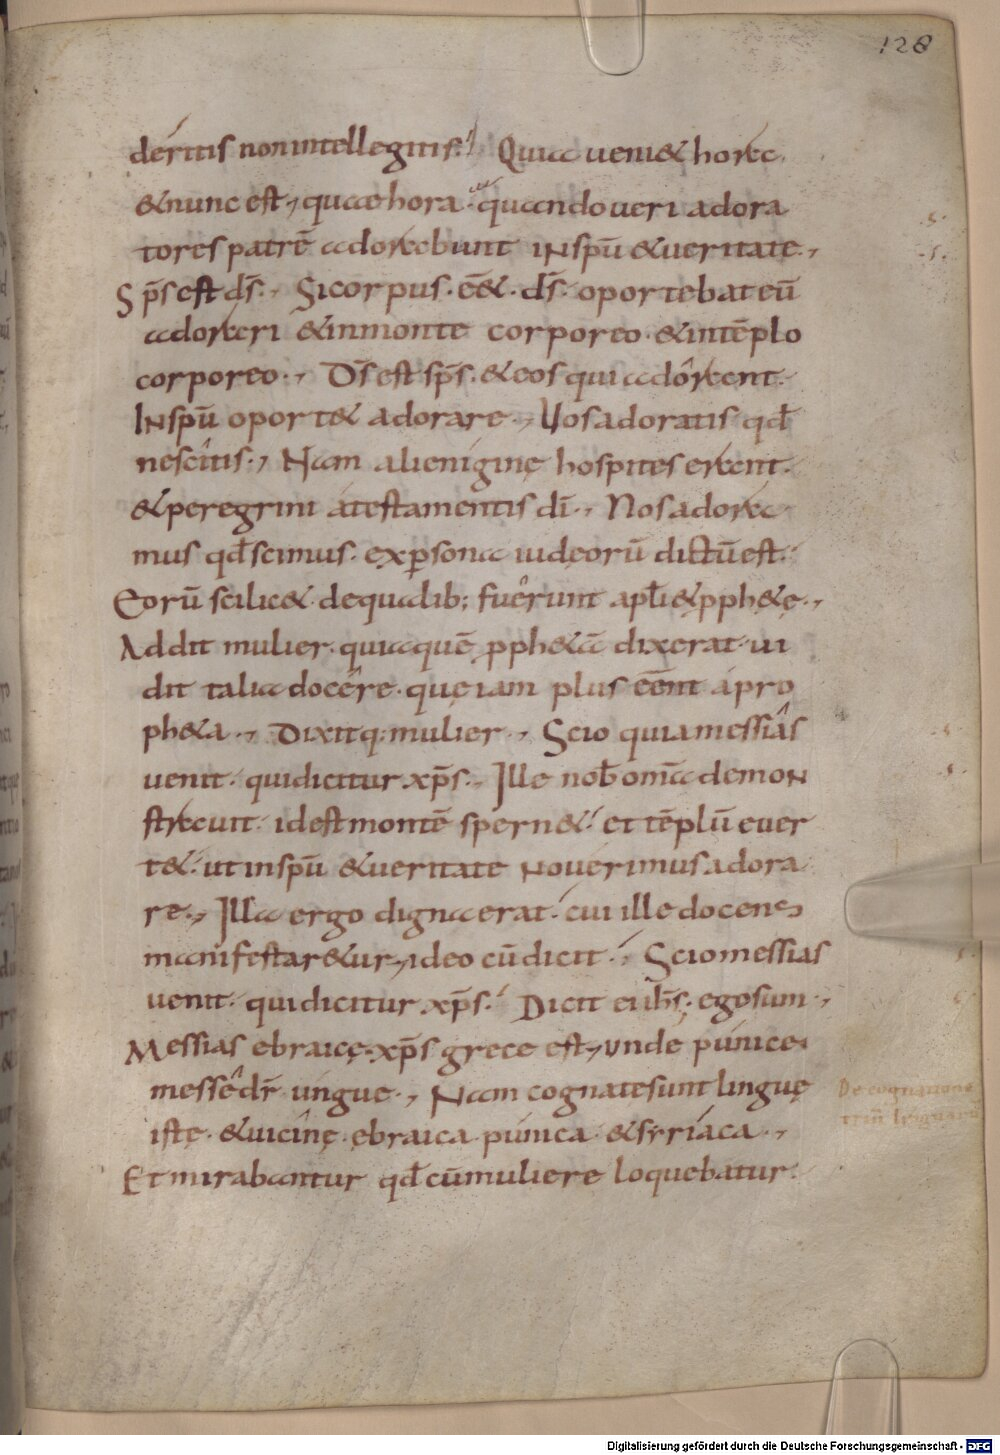 128
deritis non intellegitis. Quia ueniet hora
& nunc est, quae hora. quando ueri adora
tores patrē adorabunt in spū & ueritate.
Sp̄s est d̄s. Si corpus. eēt. d̄s. oportebat eū
adorari & in monte corporeo & in tēplo
corporeo. D̄s est sp̄s. & eos qui adorant.
In spū oportet adorare. Uos adoratis qđ
nescitis. Nam alieniginę hospites erant.
& peregrini a testamentis dī. Nos adora
mus qđ scimus. ex ꝑsona iudęorū dictū est.
Eorū scilicet de qualib; fuerunt apłi & ꝓph&ę.
Addit mulier. quia quē ꝓph&ā dixerat ui
dit talia docere. quę iam plus eēnt a pro
ph&a. Dixitq; mulier. Scio quia messias
uenit. qui dicitur xp̄s. Ille nob̄ omīa demon
strauit. id est montē spern&. et tēplū euer
t&. ut in spū & ueritate nouerimus adora
re. Illa ergo digna erat. cui ille docens
manifestar&ur, ideo cū dicit. Scio messias
uenit. qui dicitur xp̄s. Dicit ei ih̄s. ego sum.
Messias ebraicę. xp̄s grece est, unde punice
messe dr̄ ungue. Nam cognate sunt linguę
istę. & uicinę. ebraica punica & syriaca.
Et mirabantur qđ cū muliere loquebatur.
De cognatione
triū linguarū
Digitalisierung gefördert durch die Deutsche Forschungsgemeinschaft - DFG